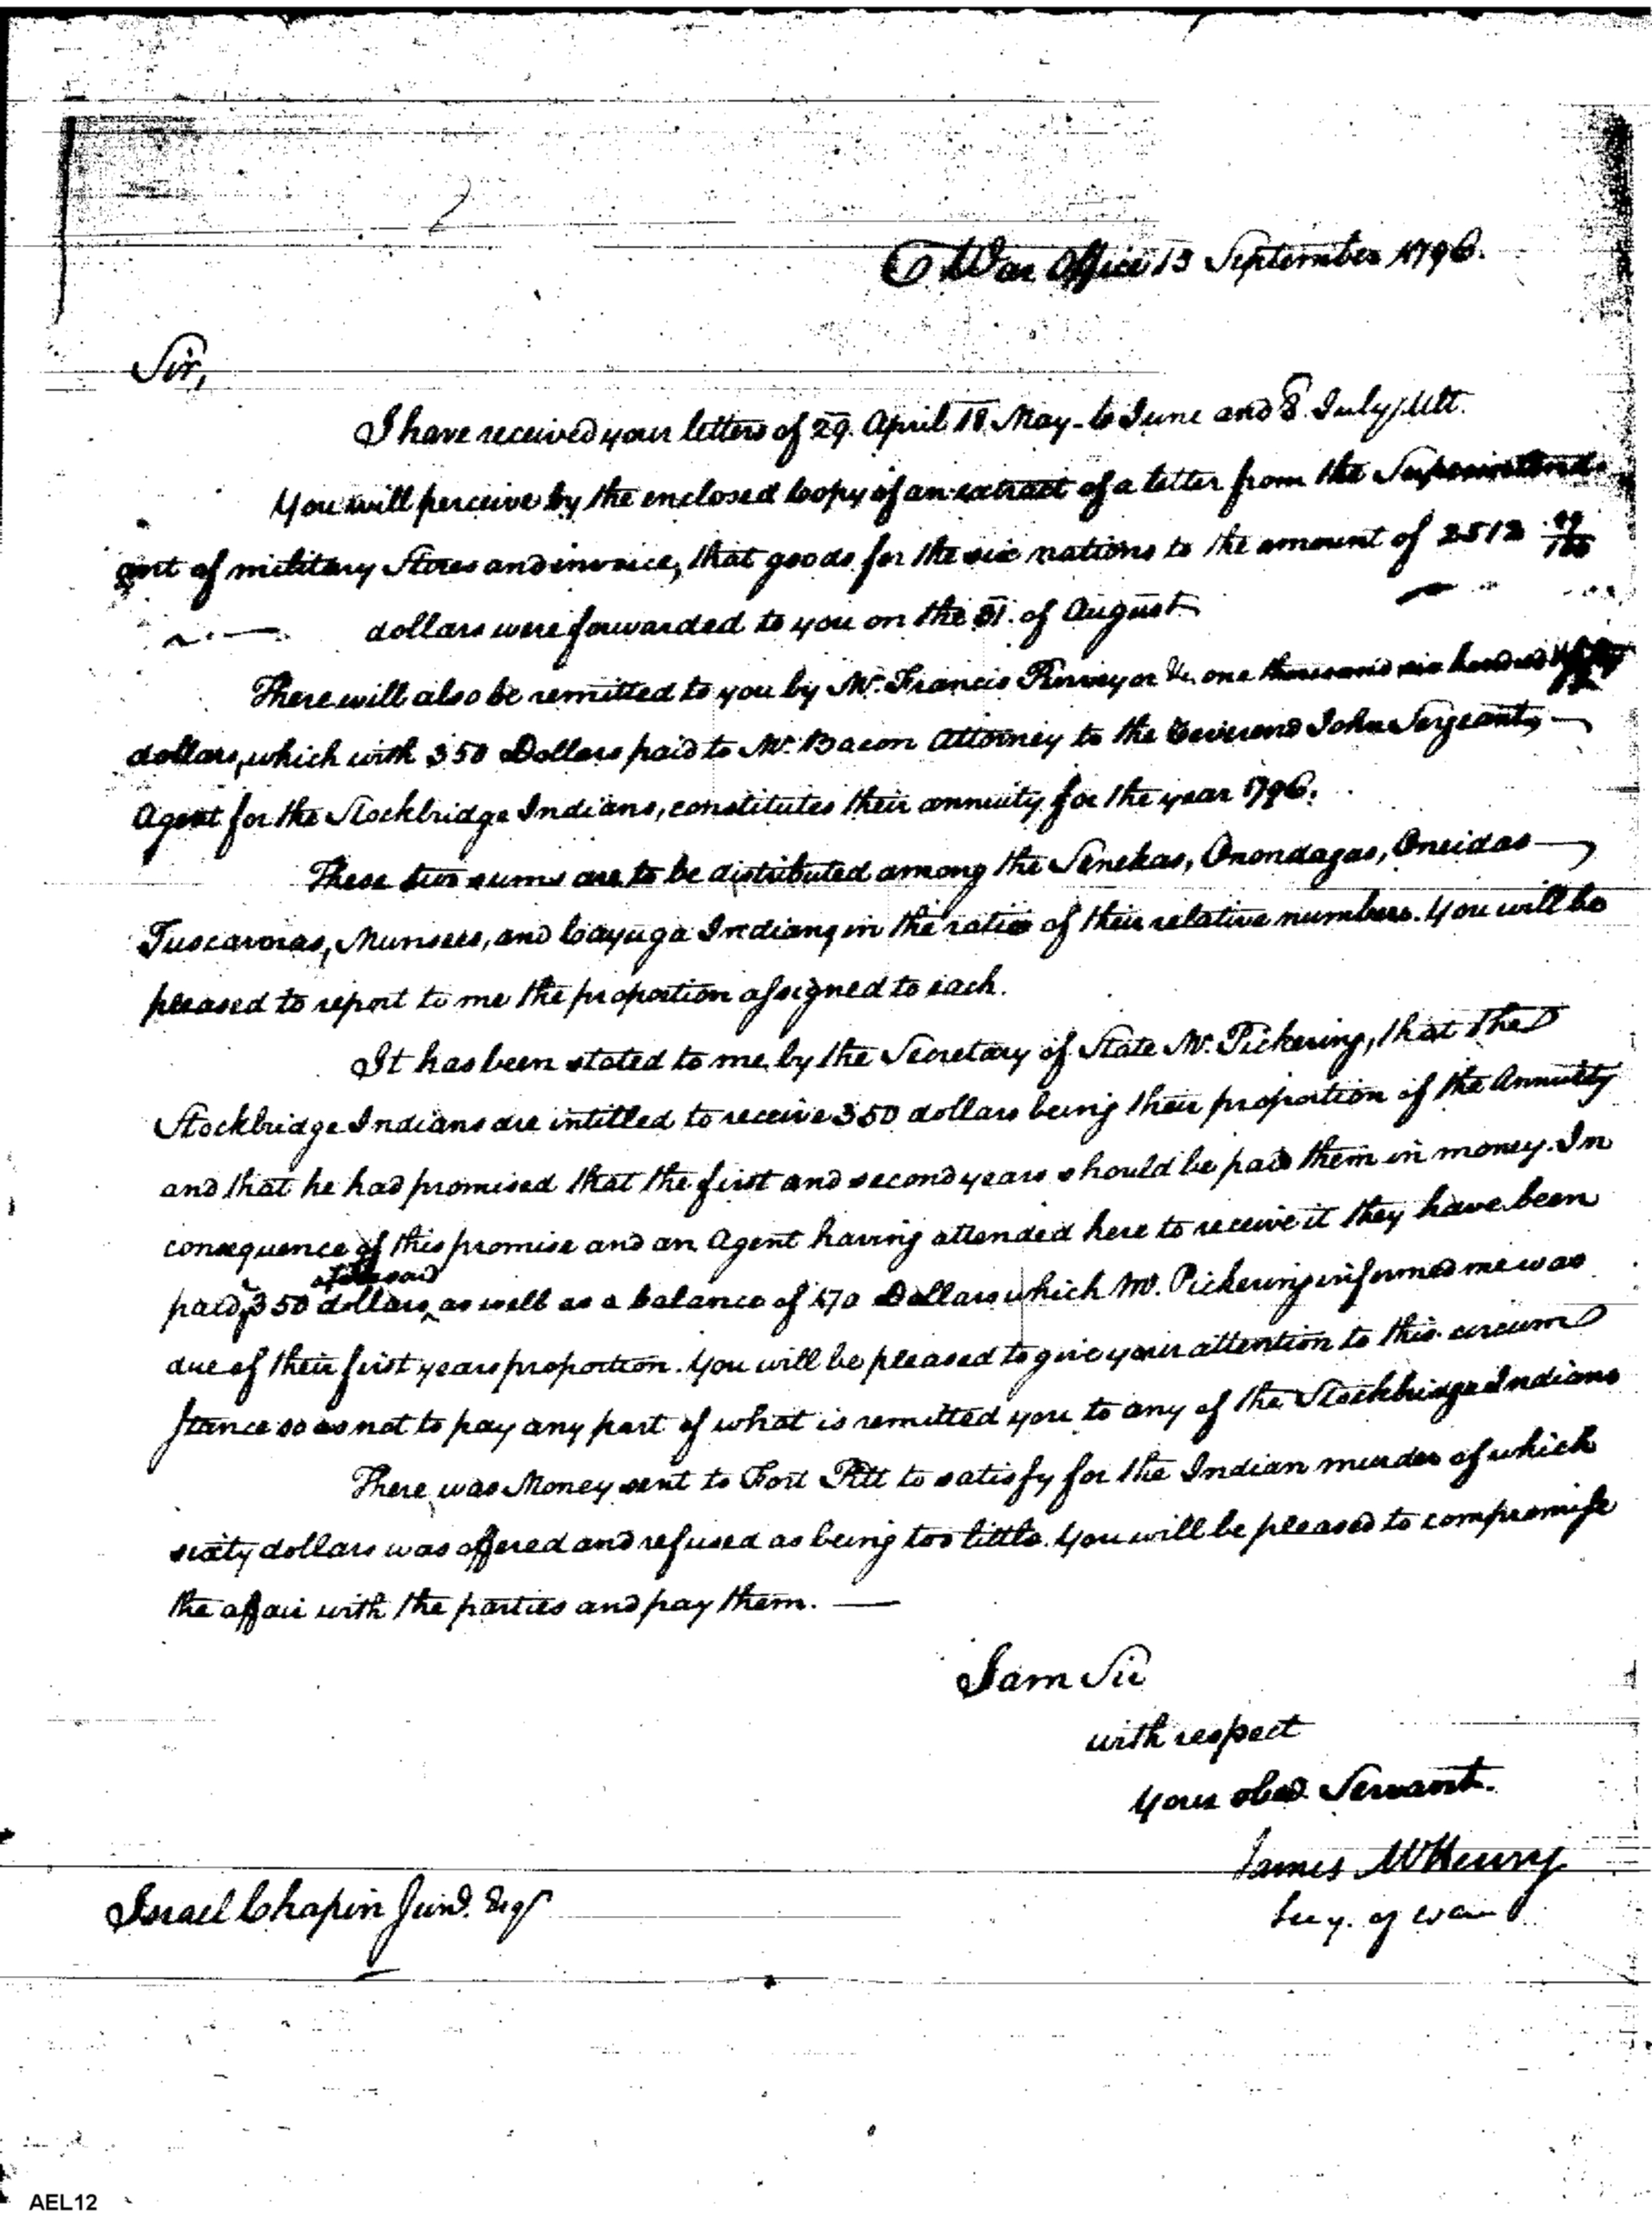 2
War Office 13 September 1796.
Sir,
I have received your letters of 29. April 18 May - 6 June and 8. July Ult.
You will perceive by the enclosed Copy of an extract of a letter from the Superintend-
ent of military Stores and invoice, that goods for the six nations to the amount of 2512 /100
dollars were forwarded to you on the 31. of August
There will also be remitted to you by Mr. Francis Purveyor &c. one thousand six hundred fifty
dollars, which with 350 Dollars paid to Mr. Bacon Attorney to the Reverend John Sergeant,
Agent for the Stockbridge Indians, constitutes their annuity for the year 1796.
These two sums are to be distributed among the Senekas, Onondagas, Oneidas
Tuscaroras, Munsees, and Cayuga Indians, in the ratio of their relative numbers. You will be
pleased to report to me the proportion assigned to each.
It has been stated to me by the Secretary of State Mr. Pickering, that the
Stockbridge Indians are intitled to receive 350 dollars being their proportion of the Annuity
and that he had promised that the first and second years should be paid them in money. In
consequence of this promise and an Agent having attended here to receive it they have been
aforesaid
paid 350 dollars, as well as a balance of 170 Dollars which Mr. Pickering informed me was
due of their first years proportion. You will be pleased to give your attention to this circum
stance so as not to pay any part of what is remitted you to any of the Stockbridge Indians
There was Money sent to Fort Pitt to satisfy for the Indian murder of which
sixty dollars was offered and refused as being too little. You will be pleased to compromise
the affair with the parties and pay them. —
I am Sir
with respect
Your obed. Servant.
James McHenry
Secy. of War
Israel Chapin Junr. Esqr
AEL12